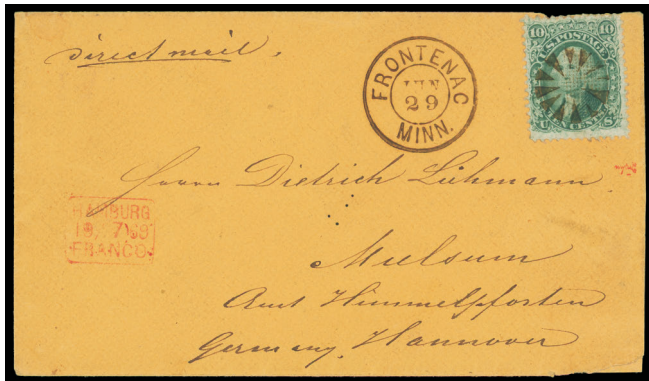 Direct mail.
FRONTENAC
JUN
29
MINN.
10 10
U.S. POSTAGE
TEN CENTS
U S
Herrn Dietrich Lühmann
HAMBURG
FRANCO
Mulsum
Amt Himmelpforten
Germany, Hannover